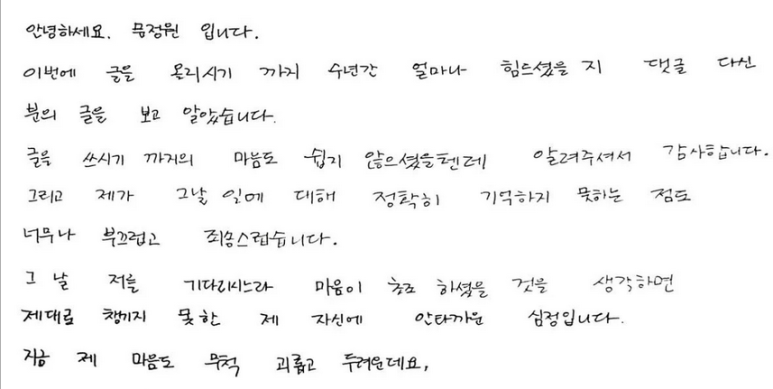 안녕하세요. 문정원 입니다.
이번에 글을 올리시기 까지 수년간 얼마나 힘드셨을 지 댓글 다신
분의 글을 보고 알았습니다.
글을 쓰시기 까지의 마음도 쉽지 않으셨을텐데 알려주셔서 감사합니다.
그리고 제가 그날 일에 대해 정확히 기억하지 못하는 점도
너무나 부끄럽고 죄송스럽습니다.
그 날 저를 기다리시느라 마음이 초조 하셨을 것을 생각하면
제대로 챙기지 못한 제 자신에 안타까운 심정입니다.
지금 제 마음도 무척 괴롭고 두려운데요,